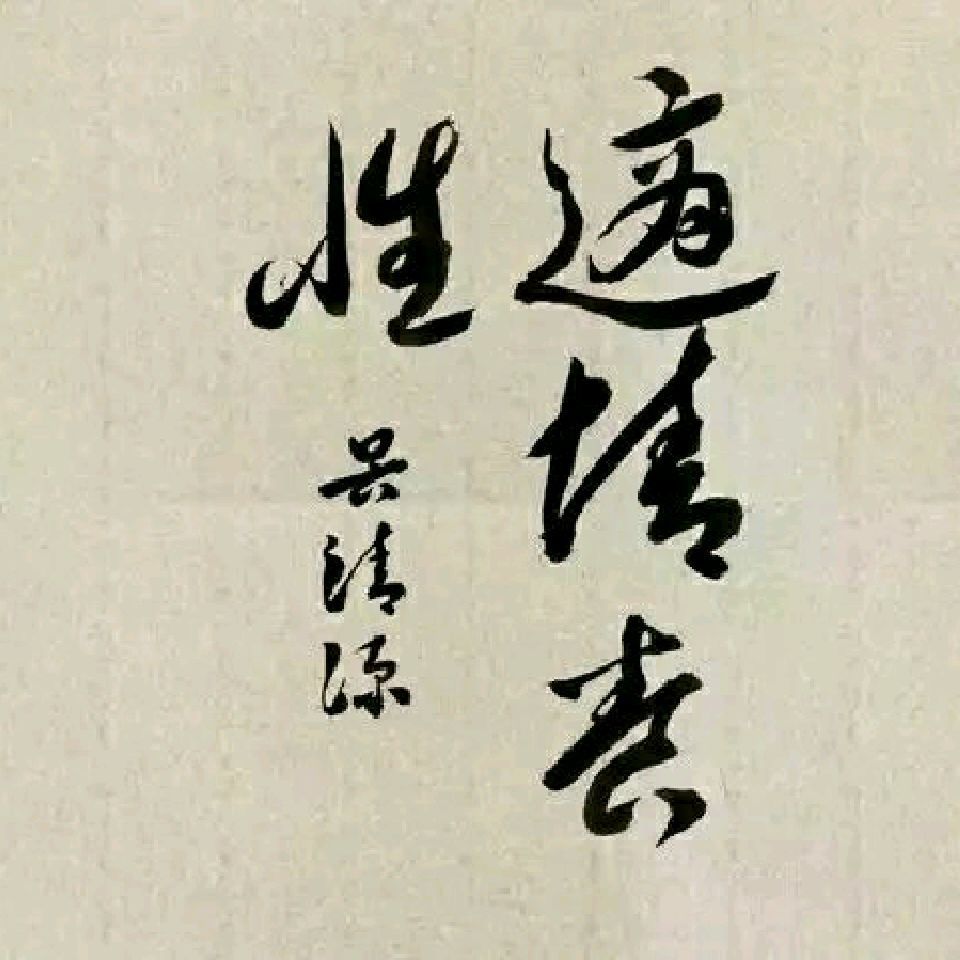 適情養
性
吴清源